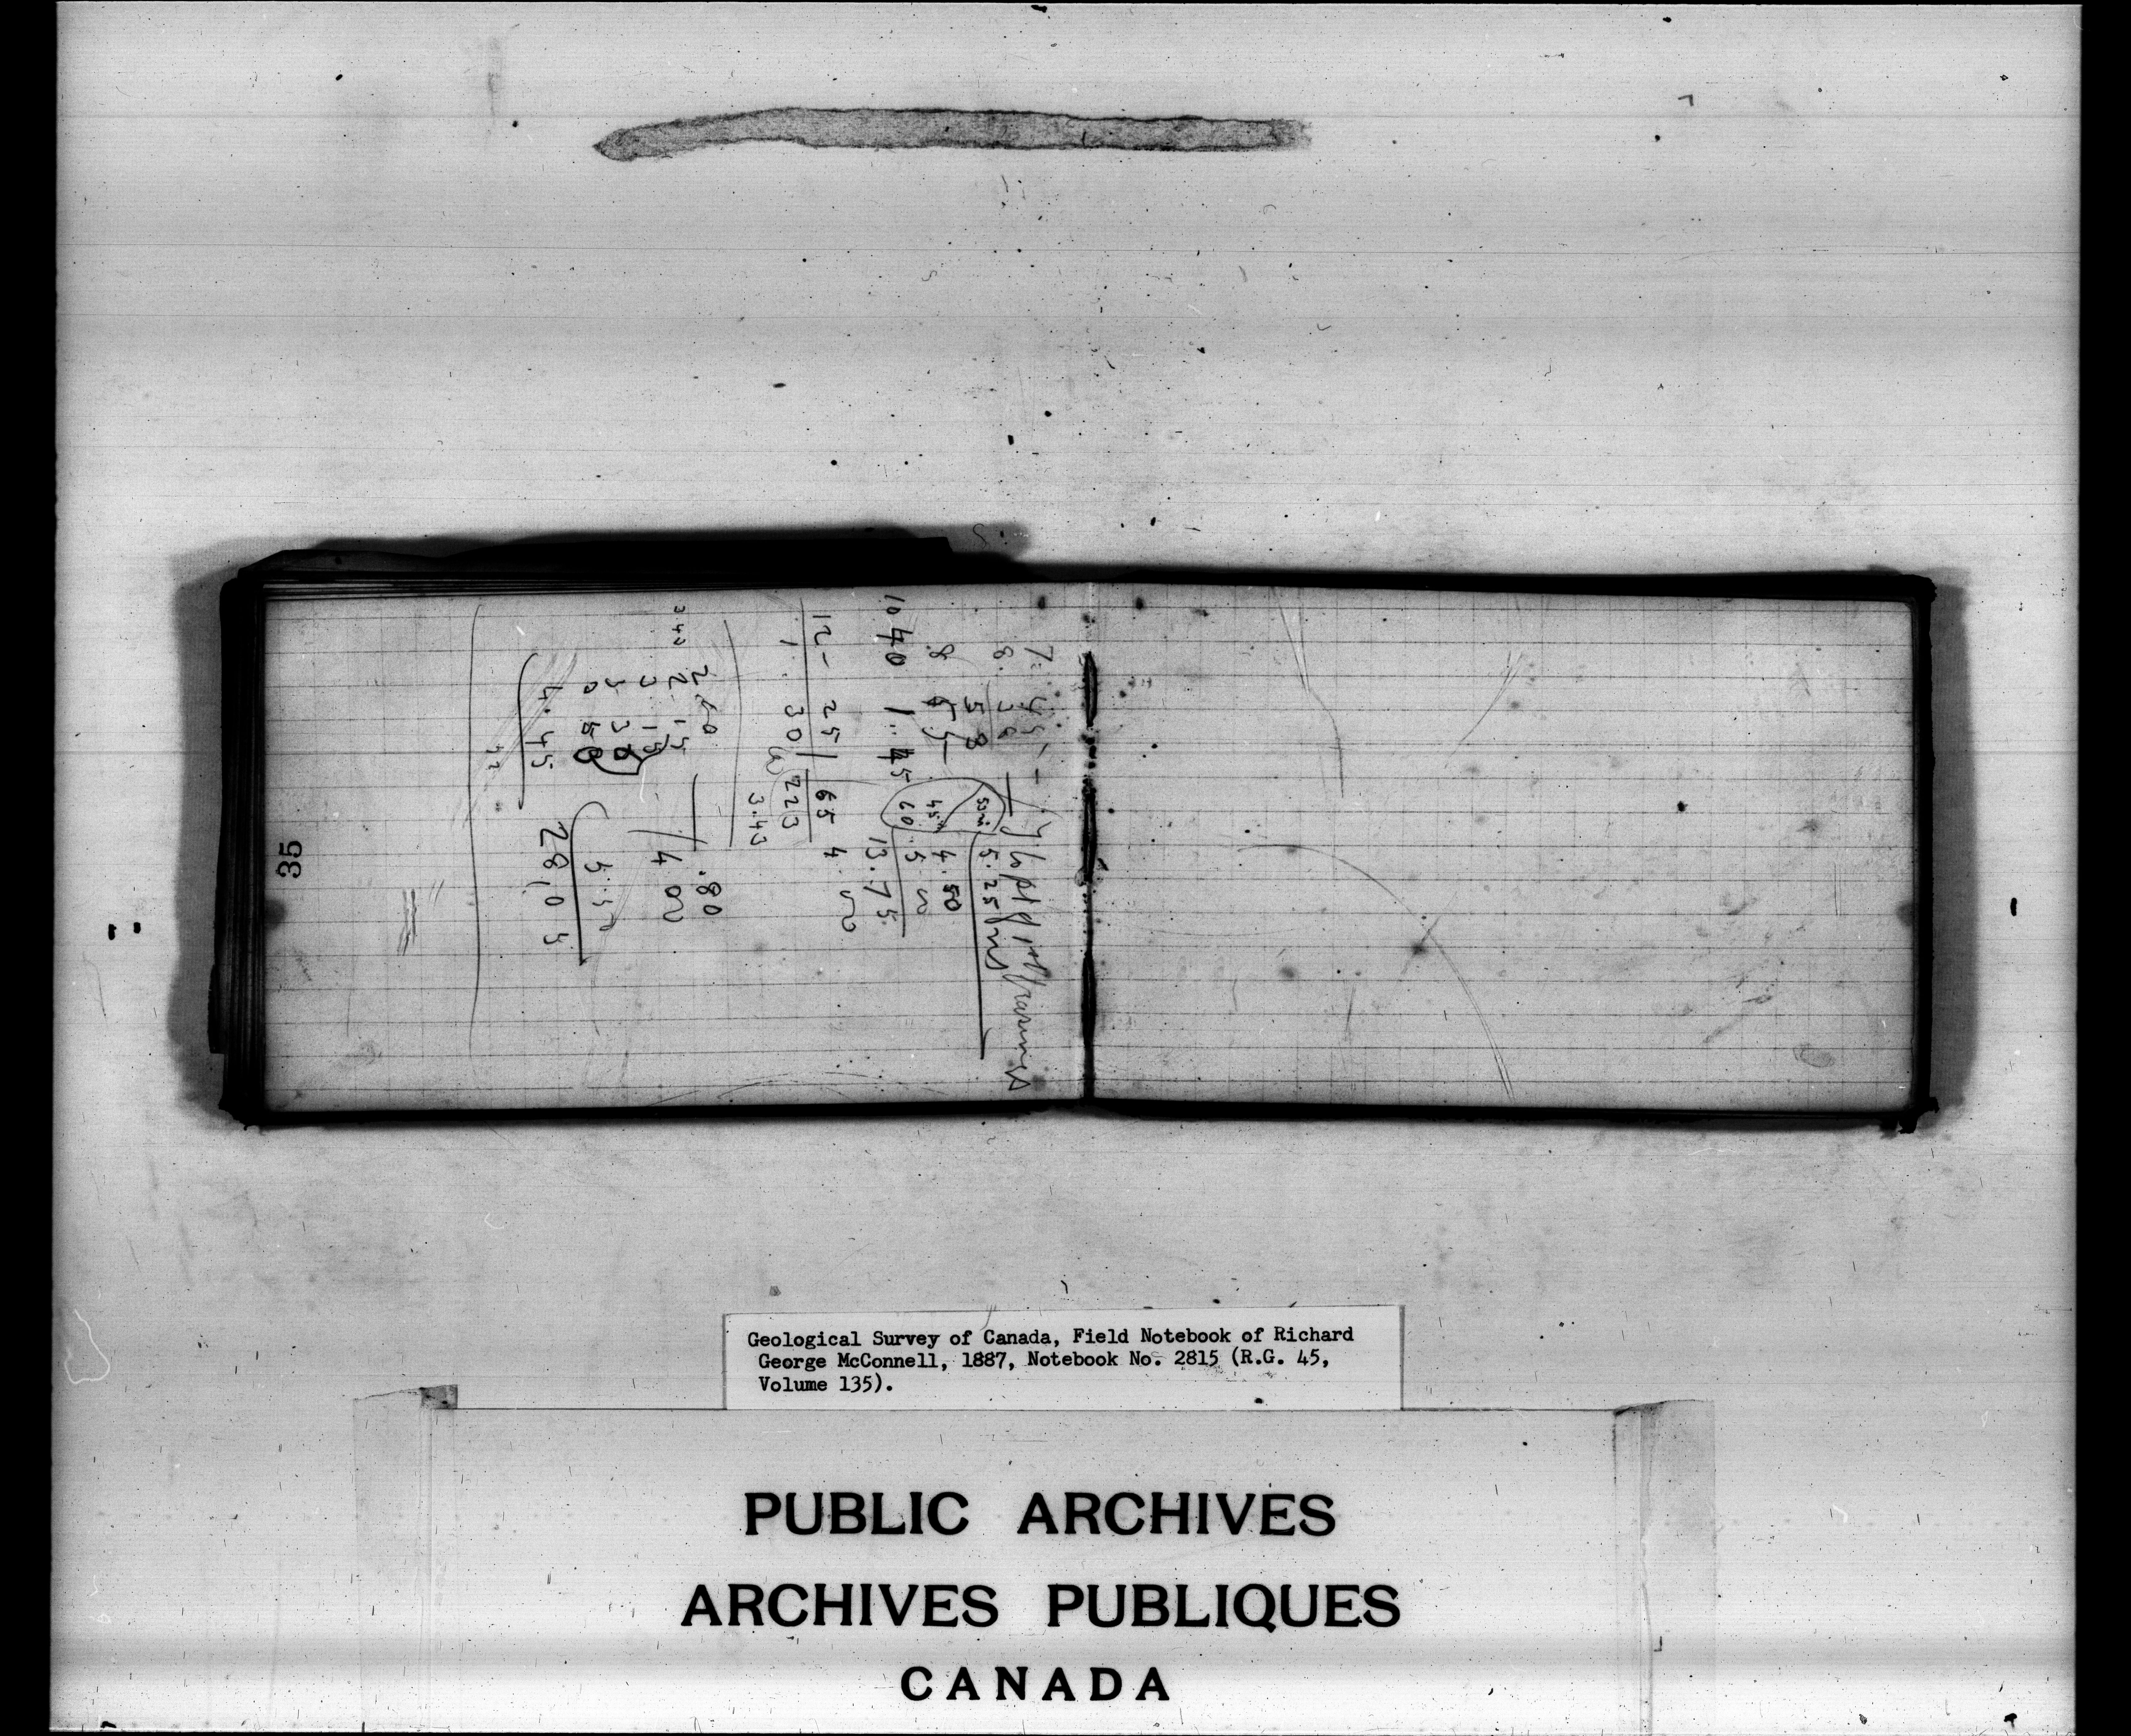 7. 45 -
8. 38
58
8 55
10 40 1.45
53m 5.25 m s
45m 4.50
60 5 00
13.75
12- 25 65 4.00
1. 30 223
3.43
260 .80
343 2.15 4 00
3 15
3 30
0 50
4.45 28.05
35
Geological Survey of Canada, Field Notebook of Richard
George McConnell, 1887, Notebook No. 2815 (R.G. 45,
Volume 135).
PUBLIC ARCHIVES
ARCHIVES PUBLIQUES
CANADA